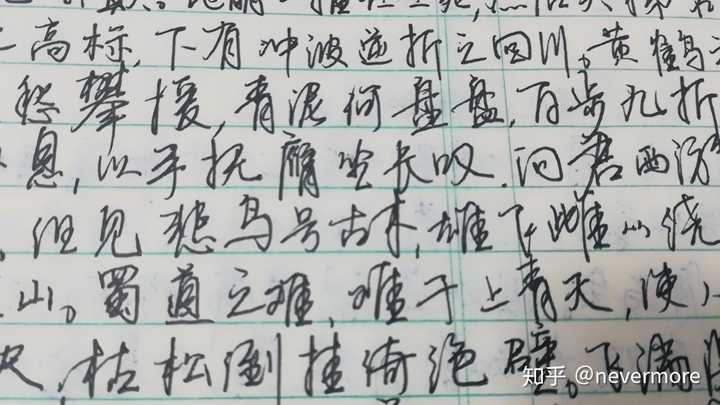 高标,下有冲波逆折之回川。黄鹤
愁攀援,青泥何盘盘,百步九折
息,以手抚膺坐长叹.问君西游
但见悲鸟号古木,雄飞雌从绕
山。蜀道之难,难于上青天,使
尺,枯松倒挂倚绝壁。飞湍
知乎 @nevermore